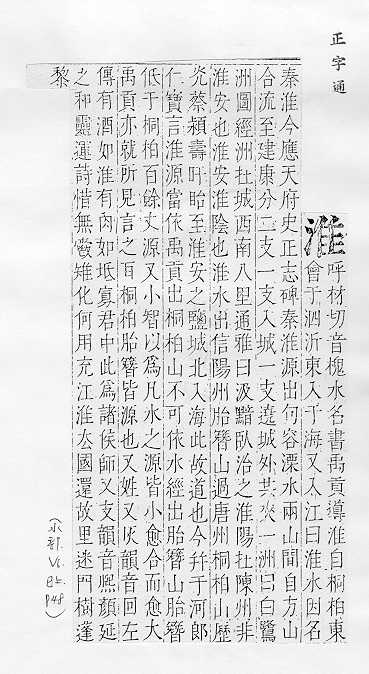 正字通
淮 呼材切音槐水名書禹貢導淮自桐柏東
會于泗沂東入于海又入江曰淮水因名
秦淮今應天府史正志碑秦淮源出句容溧水兩山間自方山
合流至建康分二支一支入城一支遶城外共夾一洲曰白鷺
洲圖經洲社城西南八里通雅曰汲黯臥治之淮陽社陳州非
淮安也淮安淮陰也淮水出信陽州胎簪山過唐州桐柏山歷
兗蔡潁壽盱眙至淮安之鹽城北入海此故道也今幷于河郎
仁寶言淮源當依禹貢出桐柏山不可依水經出胎簪山胎簪
低于桐柏百餘丈源又小智以爲凡水之源皆小愈合而愈大
禹貢亦就所見言之耳桐柏胎簪皆源也又姓又灰韻音回左
傳有酒如淮有肉如坻寡君中此爲諸侯師又支韻音熙顏延
之和靈運詩惜無雀雉化何用充江淮去國還故里迷門樹蓬
黎
(水部.
Vi.
p48)